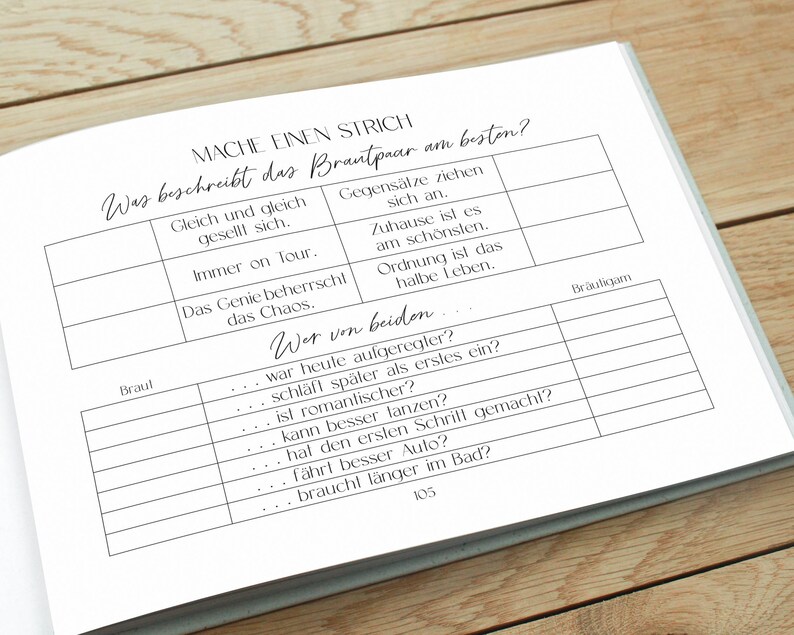 MACHE EINEN STRICH
Was beschreibt das Brautpaar am besten?
Gleich und gleich
gesellt sich.
Gegensätze ziehen
sich an.
Immer on Tour.
Zuhause ist es
am schönsten.
Das Genie beherrscht
das Chaos.
Ordnung ist das
halbe Leben.
Wer von beiden . . .
Braut
Bräutigam
. . . war heute aufgeregter?
. . . schläft später als erstes ein?
. . . ist romantischer?
. . . kann besser tanzen?
. . . hat den ersten Schritt gemacht?
. . . fährt besser Auto?
. . . braucht länger im Bad?
105